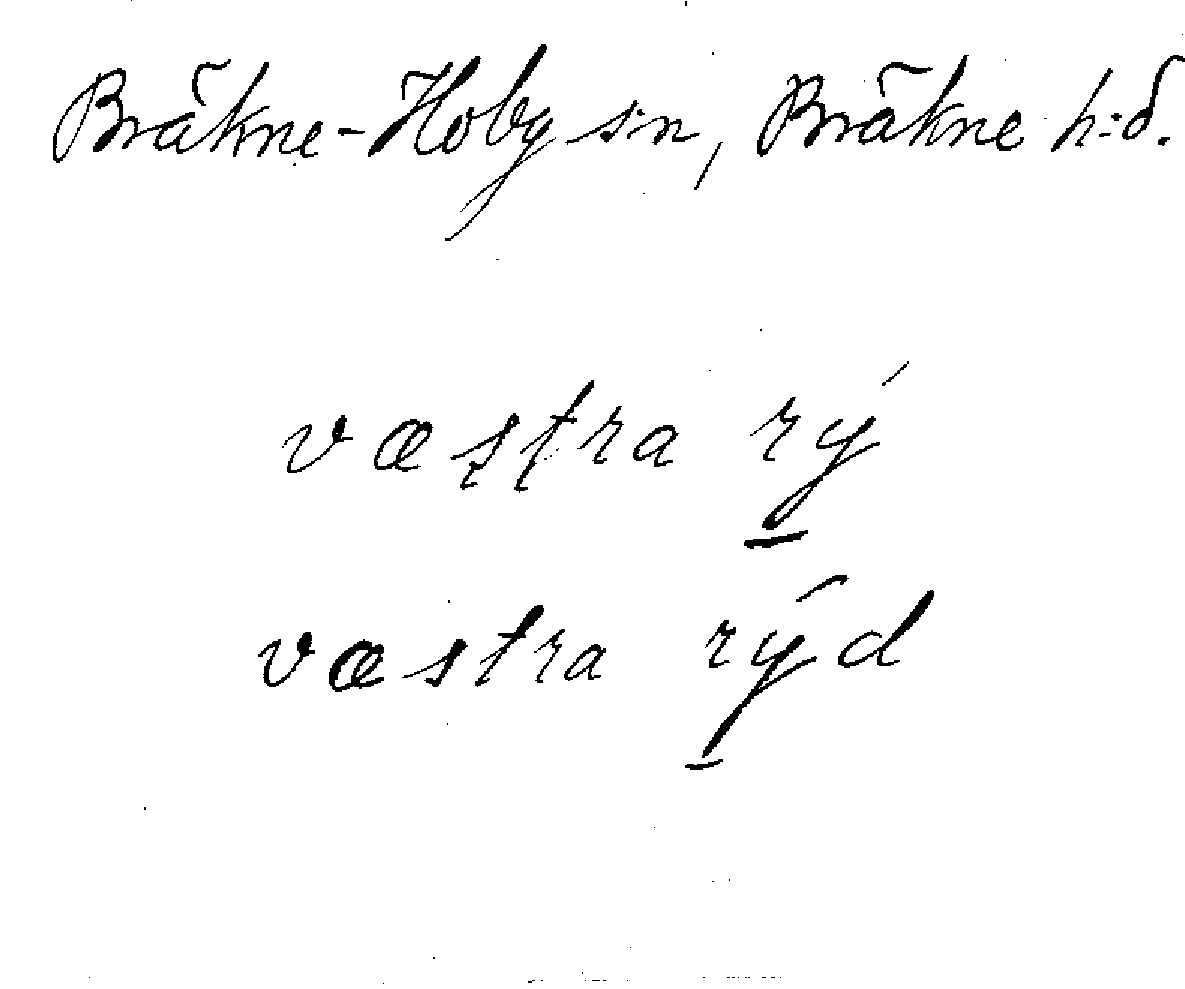 Bräkne-Hoby s:n, Bräkne h:d.
væstra rý
væstra rýd